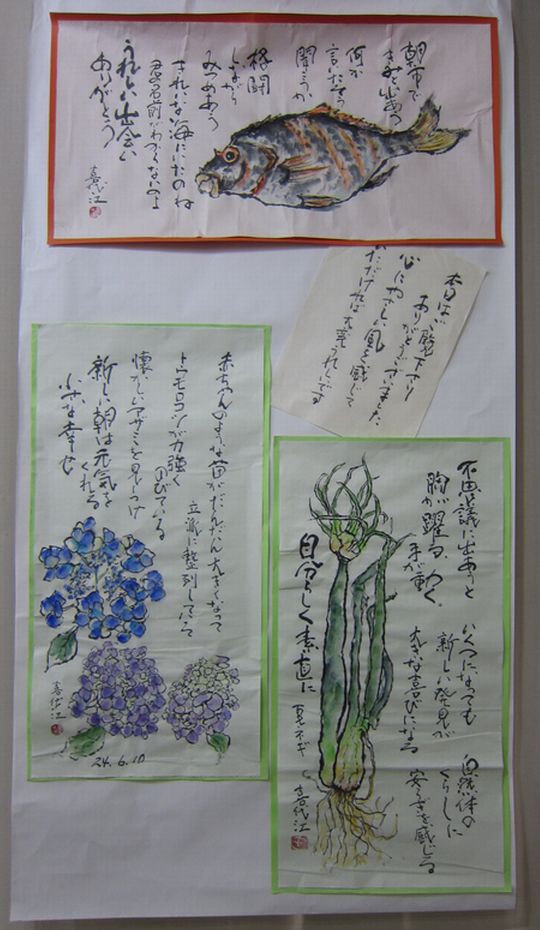 朝市で
きみと出あう
何か
言いたそう
聞こうか
格闘
しながら
みつめあう
きれいな海にいたのね
君の名前がわからないのよ
うれしい出会い
ありがとう
喜代江
本日はご覧下さり
ありがとうございました
心にやさしい風を感じて
いただければ大変うれしいです
赤ちゃんのような苗がだんだん大きくなって
トウモロコシが力強く
のびている
立派に整列している
懐かしいアザミを見つけ
新しい朝は元気を
くれる
小さな幸せ
喜代江
24.6.10
不思議に出あうと
胸が躍る
手が動く
いくつになっても
新しい発見が
大きな喜びになる
自然体の
くらしに
安らぎを感じる
自分らしく素直に
夏ネギ
喜代江